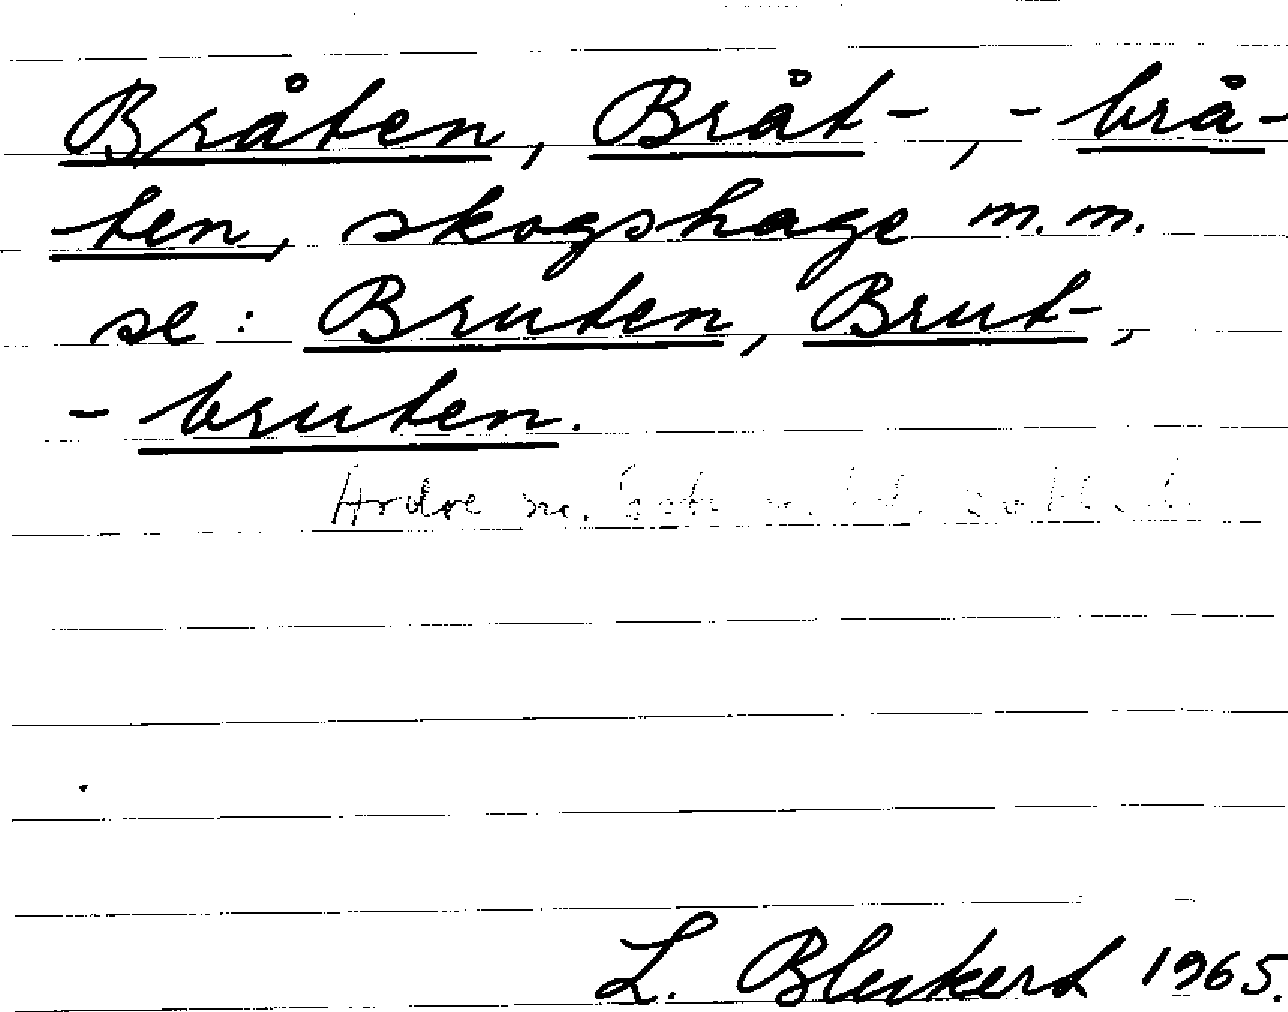 Bråten, Bråt-, -brå-
ten, skogshage m.m.
se: Bruten, Brut-,
-bruten.
Ardre sn.
L. Blekert 1965.